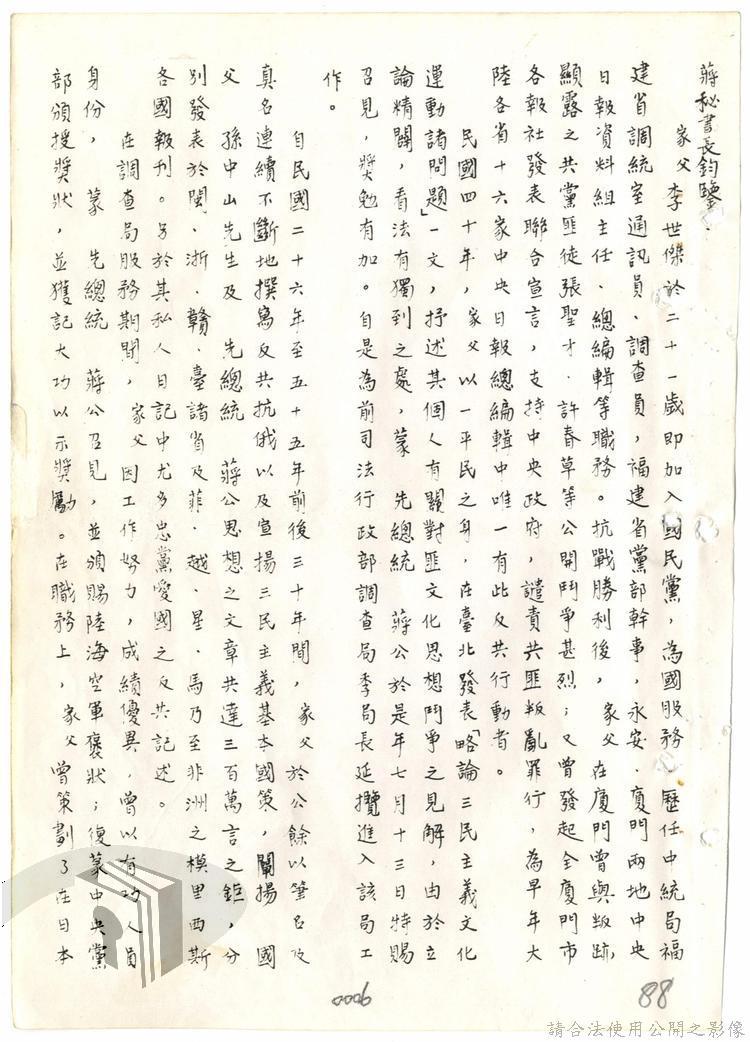 蔣秘書長鈞鑒：
家父李世傑於二十一歲即加入國民黨，為國服務，歷任中統局福
建省調統室通訊員、調查員，福建省黨部幹事，永安、廈門兩地中央
日報資料組主任、總編輯等職務。抗戰勝利後，　家父在廈門曾與叛跡
顯露之共黨匪徒張聖才、許春草等公開鬥爭甚烈；又曾發起全廈門市
各報社發表聯合宣言，支持中央政府，譴責共匪叛亂罪行，為早年大
陸各省十六家中央日報總編輯中唯一有此反共行動者。
民國四十年，　家父以一平民之身，在臺北發表「略論三民主義文化
運動諸問題」一文，抒述其個人有關對匪文化思想鬥爭之見解，由於立
論精闢，看法有獨到之處，蒙　先總統　蔣公於是年七月十三日特賜
召見，獎勉有加。自是為前司法行政部調查局季局長延攬進入該局工
作。
自民國二十六年至五十五年前後三十年間，　家父於公餘以筆名及
真名連續不斷地撰寫反共抗俄以及宣揚三民主義基本國策，闡揚　國
父　孫中山先生及　先總統　蔣公思想之文章共達三百萬言之鉅，分
別發表於閩、浙、贛、臺諸省及菲、越、星、馬乃至非洲之模里西斯
各國報刊。另於其私人日記中尤多忠黨愛國之反共記述。
在調查局服務期間，　家父因工作努力，成績優異，曾以有功人員
身份，　蒙　先總統　蔣公召見，並頒賜陸海空軍褒狀；復蒙中央黨
部頒授獎狀，並獲記大功以示獎勵。在職務上，　家父曾策劃了在日本
0006
88
請合法使用公開之影像